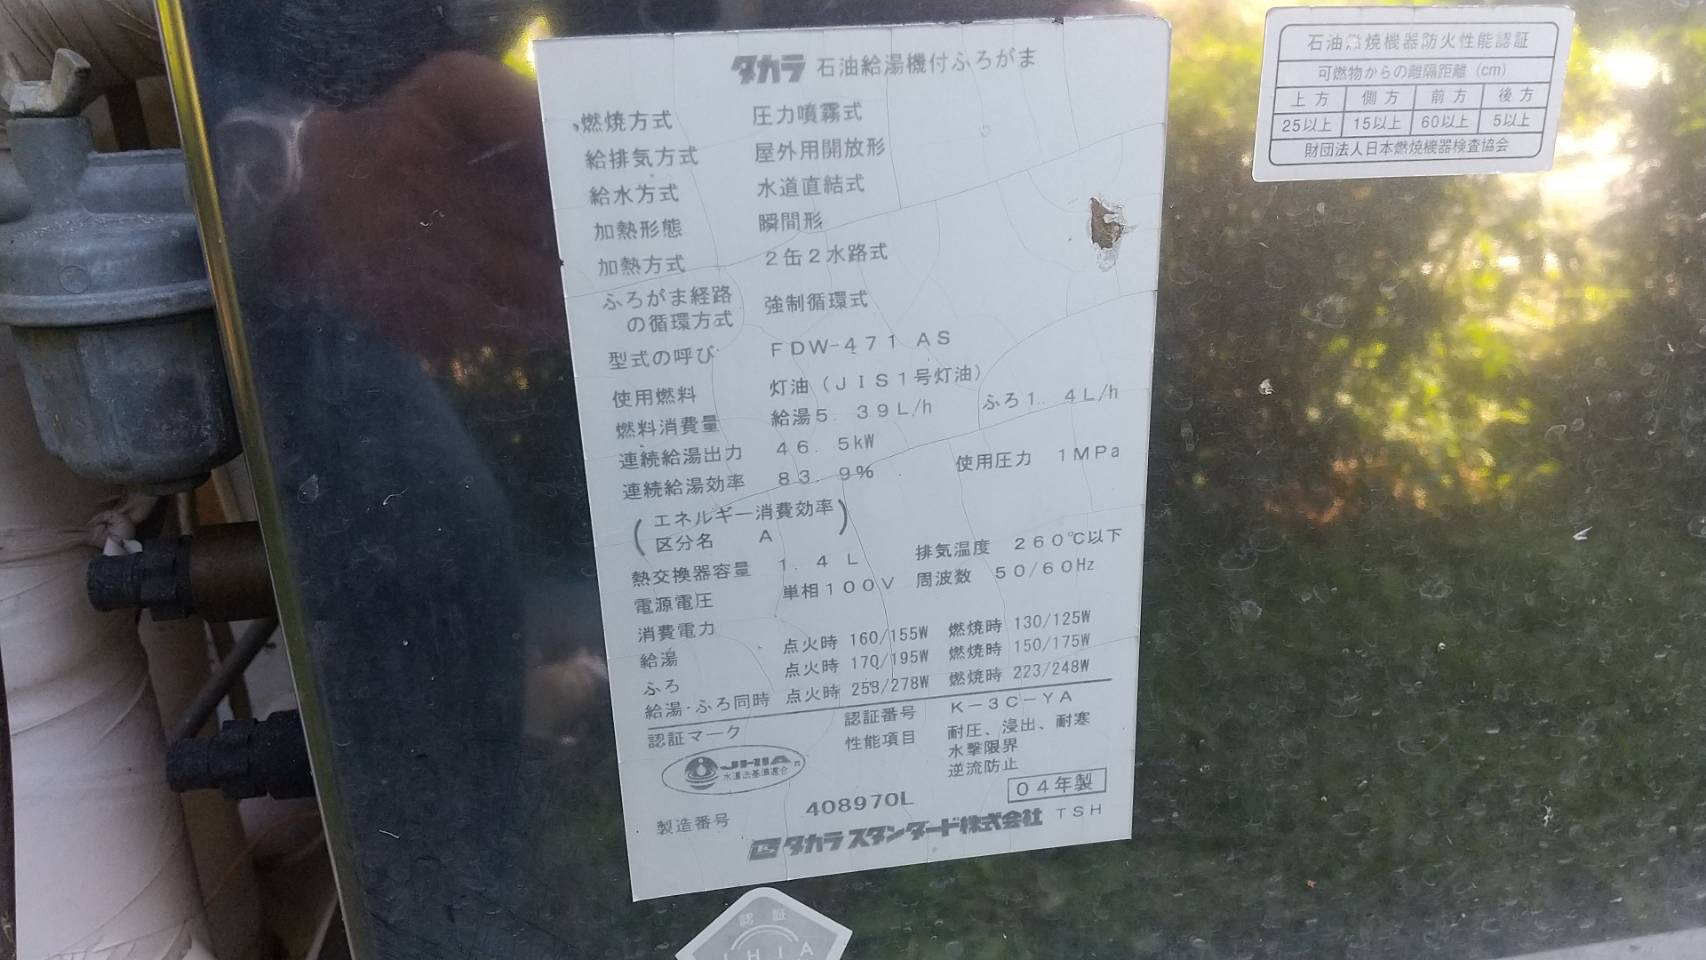 タカラ 石油給湯機付ふろがま
燃焼方式 圧力噴霧式
給排気方式 屋外用開放形
給水方式 水道直結式
加熱形態 瞬間形
加熱方式 2缶2水路式
ふろがま経路
の循環方式 強制循環式
型式の呼び FDW-471 AS
使用燃料 灯油(JIS1号灯油)
燃料消費量 給湯5.39L/h ふろ1.4L/h
連続給湯出力 46.5kW
連続給湯効率 83.9% 使用圧力 1MPa
(エネルギー消費効率)
区分名 A
熱交換器容量 1.4 L 排気温度 260℃以下
電源電圧 単相100V 周波数 50/60Hz
消費電力
給湯 点火時 160/155W 燃焼時 130/125W
ふろ 点火時 170/195W 燃焼時 150/175W
給湯・ふろ同時 点火時 253/278W 燃焼時 223/248W
認証マーク 認証番号 K-3C-YA
性能項目 耐圧、浸出、耐寒
水撃限界
逆流防止
JHIA
水道法基準適合
04年製
製造番号 408970L
タカラスタンダード株式会社 TSH
認 証
JHIA
石油燃焼機器防火性能認証
可燃物からの離隔距離(cm)
上方 側方 前方 後方
25以上 15以上 60以上 5以上
財団法人日本燃焼機器検査協会